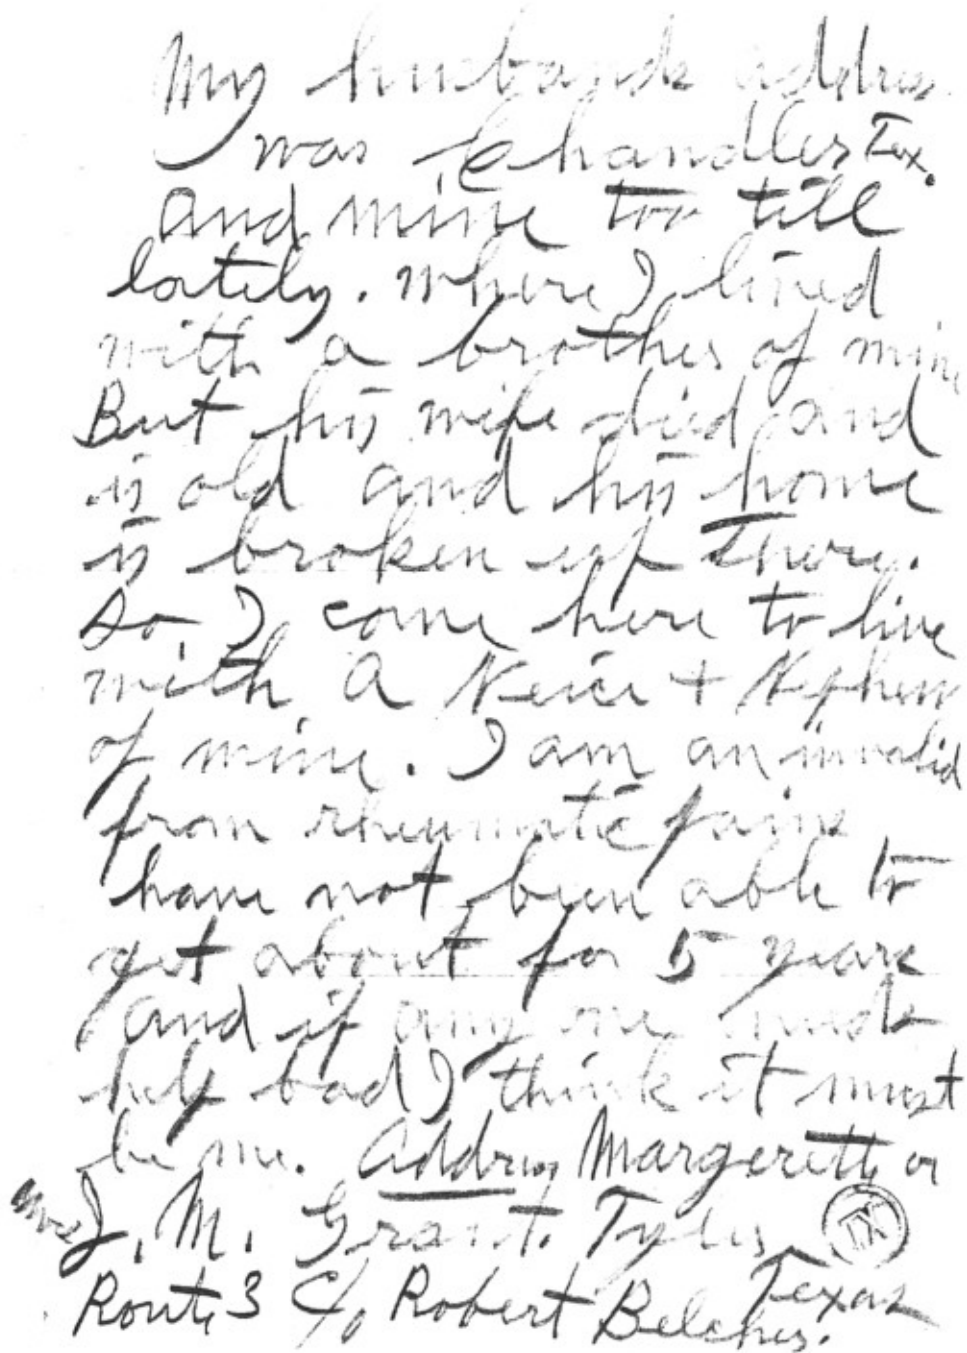 My husbands address
was Chandler Tex.
And mine too till
lately. Where I lived
with a brother of mine
But his wife died and
is old and his home
is broken up there.
So, I come here to live
with a Neice + Nephew
of mine. I am an invalid
from rheumatic pains
have not been able to
get about for 5 years
and if any one needs
help bad I think it must
be me. Address Margerett or
Mrs J. M. Grant. Tyler
Texas
IX
Route 3 c/o Robert Belcher.